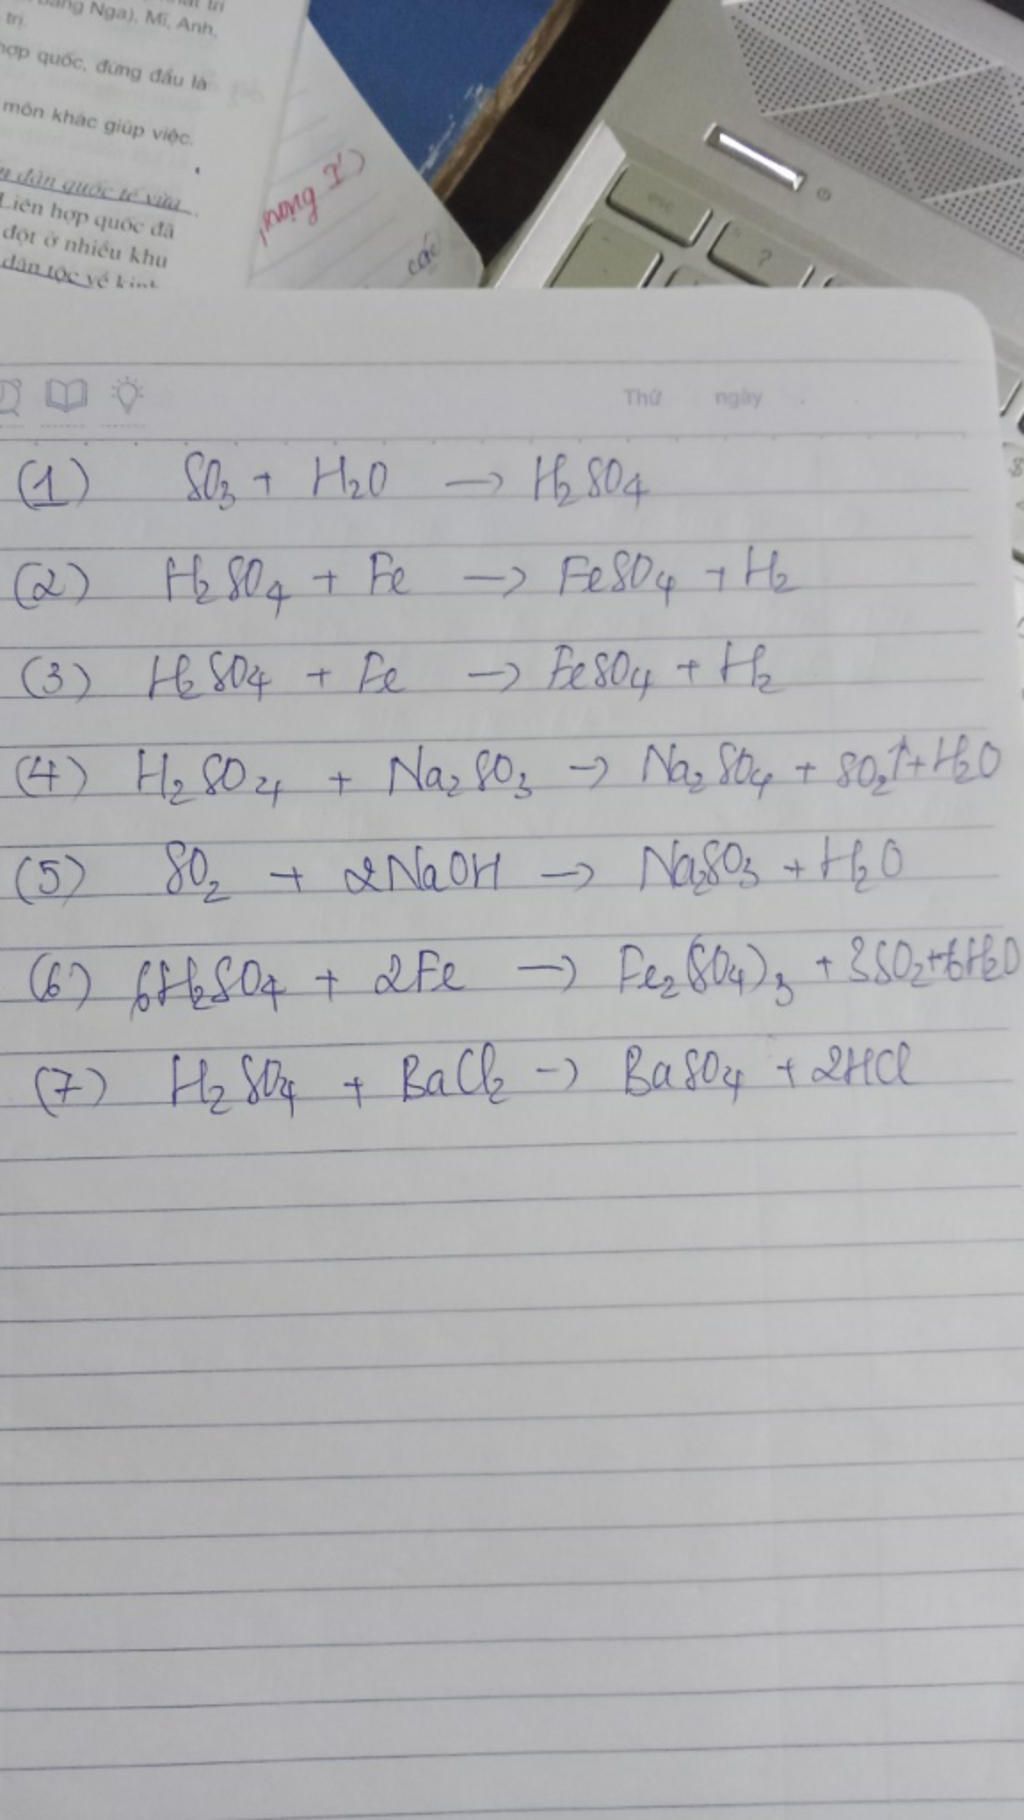 Nga), Mĩ, Anh,
trị
hợp quốc, đứng đầu là
môn khác giúp việc.
dân quốc tế vừa
Liên hợp quốc đã
đột ở nhiều khu
dân tộc về kinh
các
esc
?
Thứ ngày
(1) SO3 + H2O → H2SO4
(2) H2SO4 + Fe → FeSO4 + H2
(3) H2SO4 + Fe → FeSO4 + H2
(4) H2SO4 + Na2SO3 → Na2SO4 + SO2↑ + H2O
(5) SO2 + 2NaOH → Na2SO3 + H2O
(6) 6H2SO4 + 2Fe → Fe2(SO4)3 + 3SO2 + 6H2O
(7) H2SO4 + BaCl2 → BaSO4 + 2HCl
$